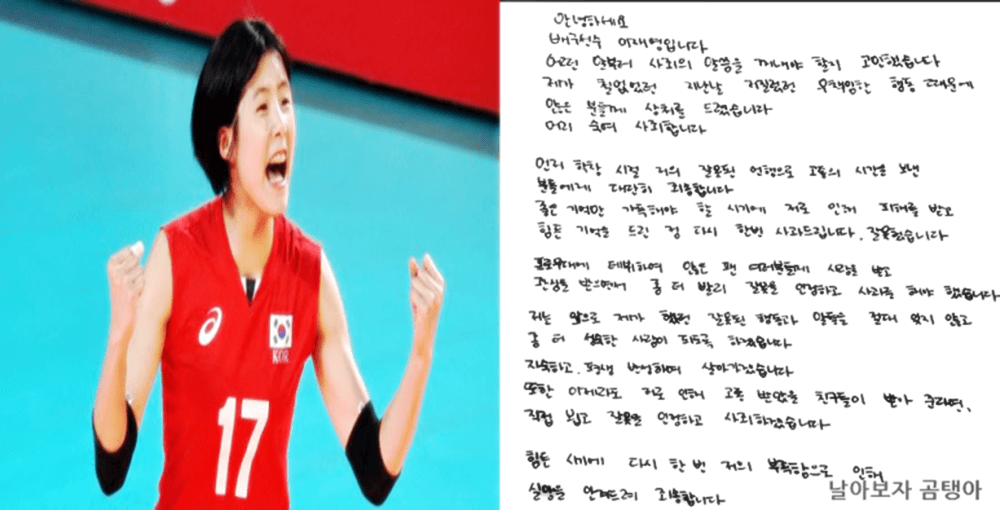 KOR
17
안녕하세요
배구선수 이재영입니다
어떤 말부터 사죄의 말씀을 꺼내야 할지 고민했습니다
제가 철없었던 지난날 저질렀던 무책임한 행동 때문에
많은 분들께 상처를 드렸습니다
머리 숙여 사죄합니다
먼저 학창 시절 저의 잘못된 언행으로 고통의 시간을 보낸
분들에게 대단히 죄송합니다
좋은 기억만 가득해야 할 시기에 저로 인해 피해를 받고
힘든 기억을 드린 점 다시 한번 사과드립니다. 잘못했습니다
프로무대에 데뷔하여 많은 팬 여러분들께 사랑을 받고
관심을 받으면서 좀 더 빨리 잘못을 인정하고 사죄를 해야 했습니다
저는 앞으로 제가 했던 잘못된 행동과 말들을 절대 잊지 않고
좀 더 성숙한 사람이 되도록 하겠습니다
자숙하고, 평생 반성하며 살아가겠습니다
또한 이제라도 저로 인해 고통 받았을 친구들이 받아 준다면,
직접 뵙고 잘못을 인정하고 사죄하겠습니다
힘든 시기에 다시 한 번 저의 부족함으로 인해
실망을 안겨드려 죄송합니다
날아보자 곰탱아